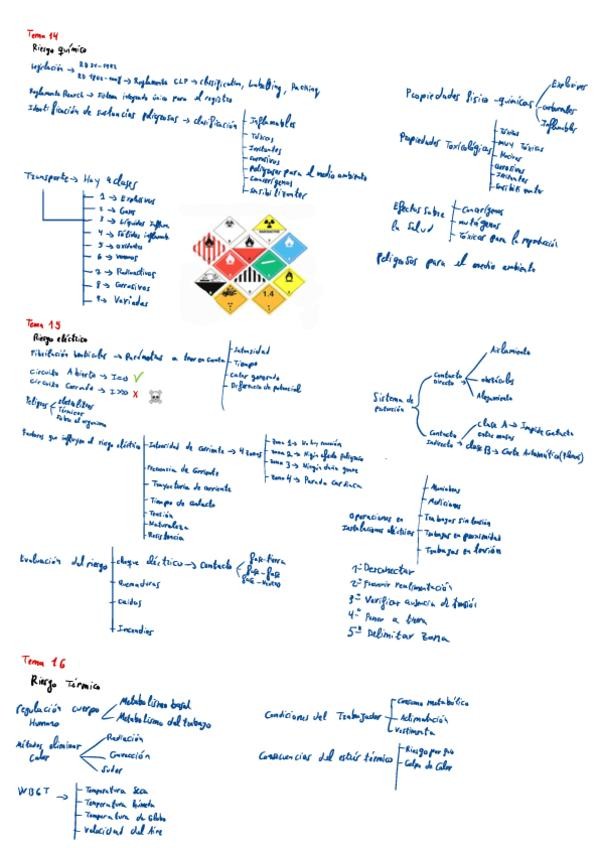 Tema 14
Riesgo químico
Legislación →
Reglamento CLP → classification, Labelling, Packing
Reglamento Reach → Sistema integrado único para el registro
Identificación de sustancias peligrosas → clasificación
Inflamables
Tóxicos
Irritantes
corrosivos
Peligrosos para el medio ambiente
Cancerígenos
Sensibilizantes
Propiedades físico-químicas
Explosivos
comburentes
Inflamables
Propiedades Toxicológicas
Tóxicas
muy Tóxicas
Nocivas
corrosivas
Irritantes
Efectos sobre la Salud
Cancerígenos
mutágenos
Tóxicos para la reproducción
Peligrosos para el medio ambiente
Transporte → Hay 9 clases
1 → Explosivos
2 → Gases
3 → Líquidos Inflam.
4 → Sólidos inflamab
5 → oxidantes
6 →
7 → Radiactivos
8 → Corrosivos
9 → Variados
RADIOACTIVE
1.4
Tema 15
Riesgo eléctrico
Fibrilación Ventricular → Parámetros a tener en Cuenta
Intensidad
Tiempo
Calor generado
Diferencia de potencial
Circuito Abierto → I=0 ✓
Circuito Cerrado → I>0 X
Peligros
Térmicos
Sobre el organismo
Sistema de protección
Contacto directo
Aislamiento
obstáculos
Alejamiento
Contacto Indirecto
clase A → Impide Contacto entre masas
clase B → Corte Automático
Factores que influyen el riego eléctrico
Intensidad de Corriente → 4 zonas
Zona 1 → No hay reacción
Zona 2 → Nigún efecto peligroso
Zona 3 → Ningún daño grave
Zona 4 → Parada Cardiaca
Frecuencia de Corriente
Trayectoria de corriente
Tiempo de contacto
Tensión
Naturaleza
Resistencia
Operaciones en Instalaciones eléctricas
Maniobras
Mediciones
Trabajos sin tensión
Trabajos en proximidad
Trabajos en tensión
Evaluación del riesgo
choque eléctrico → Contacto
fase-tierra
fase-fase
fase-neutro
Quemaduras
Caídas
Incendios
1º Desconectar
2º Prevenir realimentación
3º Verificar ausencia de tensión
4º Poner a tierra
5º Delimitar Zona
Tema 16
Riesgo Térmico
regulación cuerpo Humano
Metabolismo basal
Metabolismo del trabajo
Métodos eliminar Calor
Radiación
Convección
Sudor
WBGT →
Temperatura Seca
Temperatura húmeda
Temperatura de Globo
Velocidad del Aire
Condiciones del Trabajador
Consumo metabólico
Aclimatación
Vestimenta
Consecuencias del estrés térmico
Riesgo por frío
Golpe de Calor